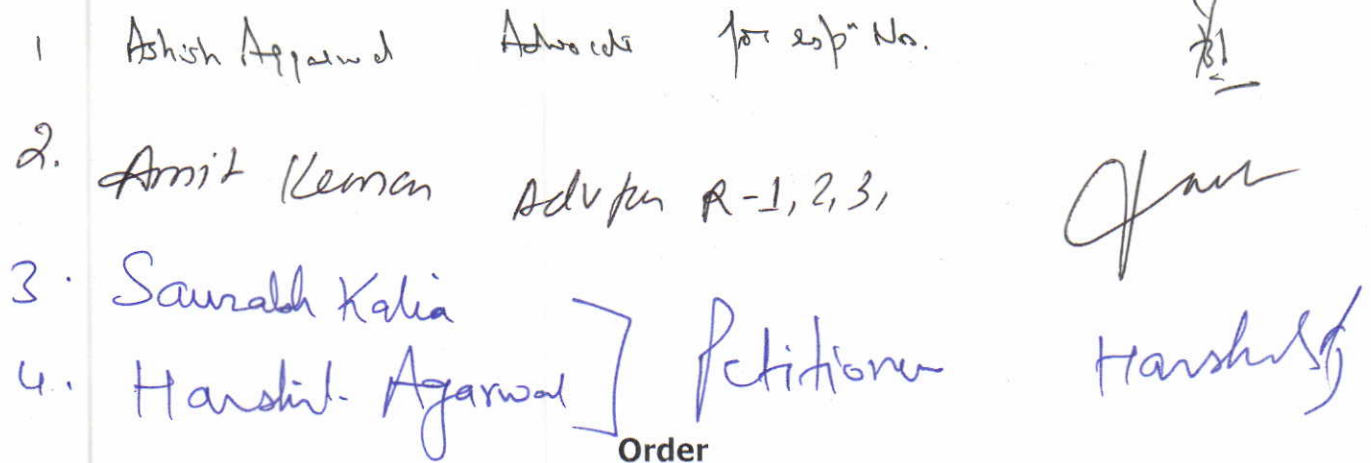 1 Ashish Aggarwal Advocate for resp" No.
2. Amit Kumar Adv for R-1, 2, 3,
3. Saurabh Kalia
4. Harshit Agarwal ] Petitioner Harshit
Order